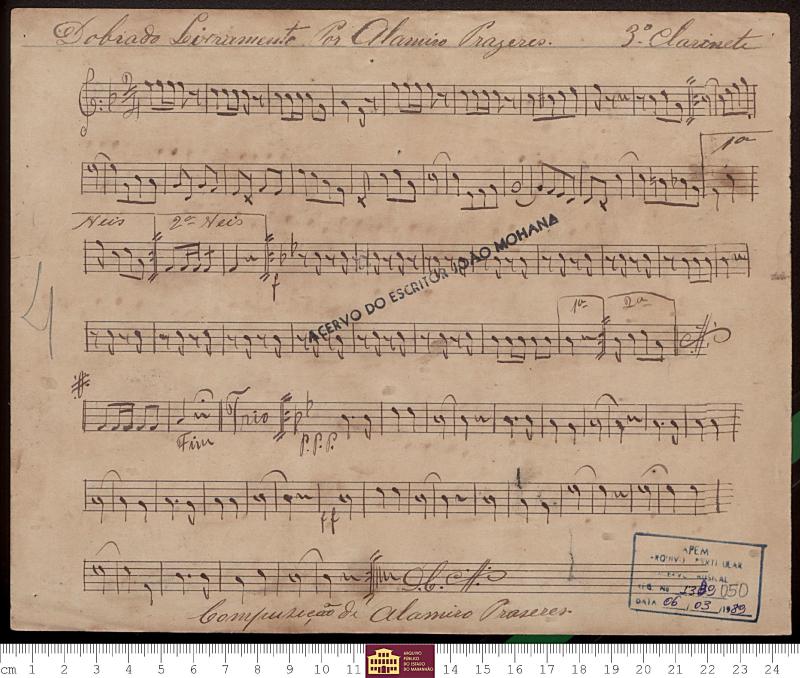 Dobrado Livramento Por Alamiro Prazeres. 3º Clarinete
1ª
Neis 2ª Neis
f
ACERVO DO ESCRITOR JOÃO MOHANA
1ª 2ª
Fim Trio P.P.P.
ff
D.C.
Compusição de Alamiro Praseres.
APEM
ARQUIVO PARTICULAR
MUSICAL
REG. No 1389 050
DATA 06 / 03 / 1989
4
cm 1 2 3 4 5 6 7 8 9 10 11 14 15 16 17 18 19 20 21 22 23 24
ARQUIVO
PÚBLICO
DO ESTADO
DO MARANHÃO